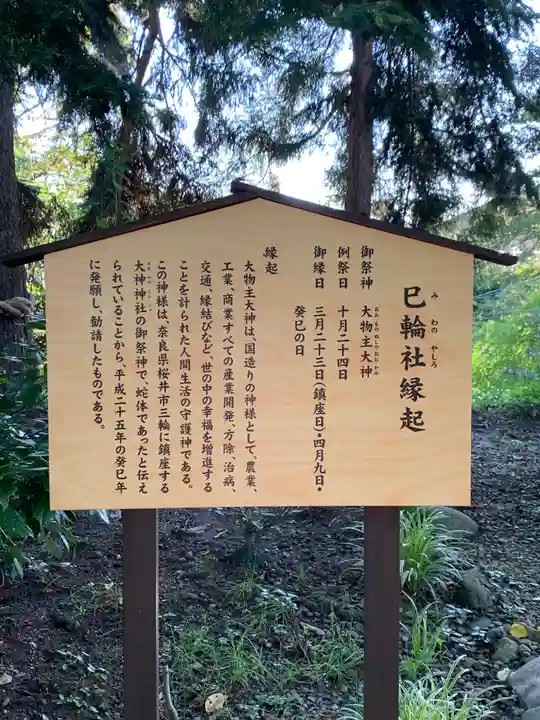 巳輪社縁起
み わの やしろ
御祭神 大物主大神
おおものぬしのおおかみ
例祭日 十月二十四日
御縁日 三月二十三日(鎮座日)・四月九日・
癸巳の日
縁起
大物主大神は、国造りの神様として、農業、
工業、商業すべての産業開発、方除、治病、
交通、縁結びなど、世の中の幸福を増進する
ことを計られた人間生活の守護神である。
この神様は、奈良県桜井市三輪に鎮座する
大神神社の御祭神で、蛇体であったと伝え
おおみわじんじゃ
られていることから、平成二十五年の癸巳年
に発願し、勧請したものである。